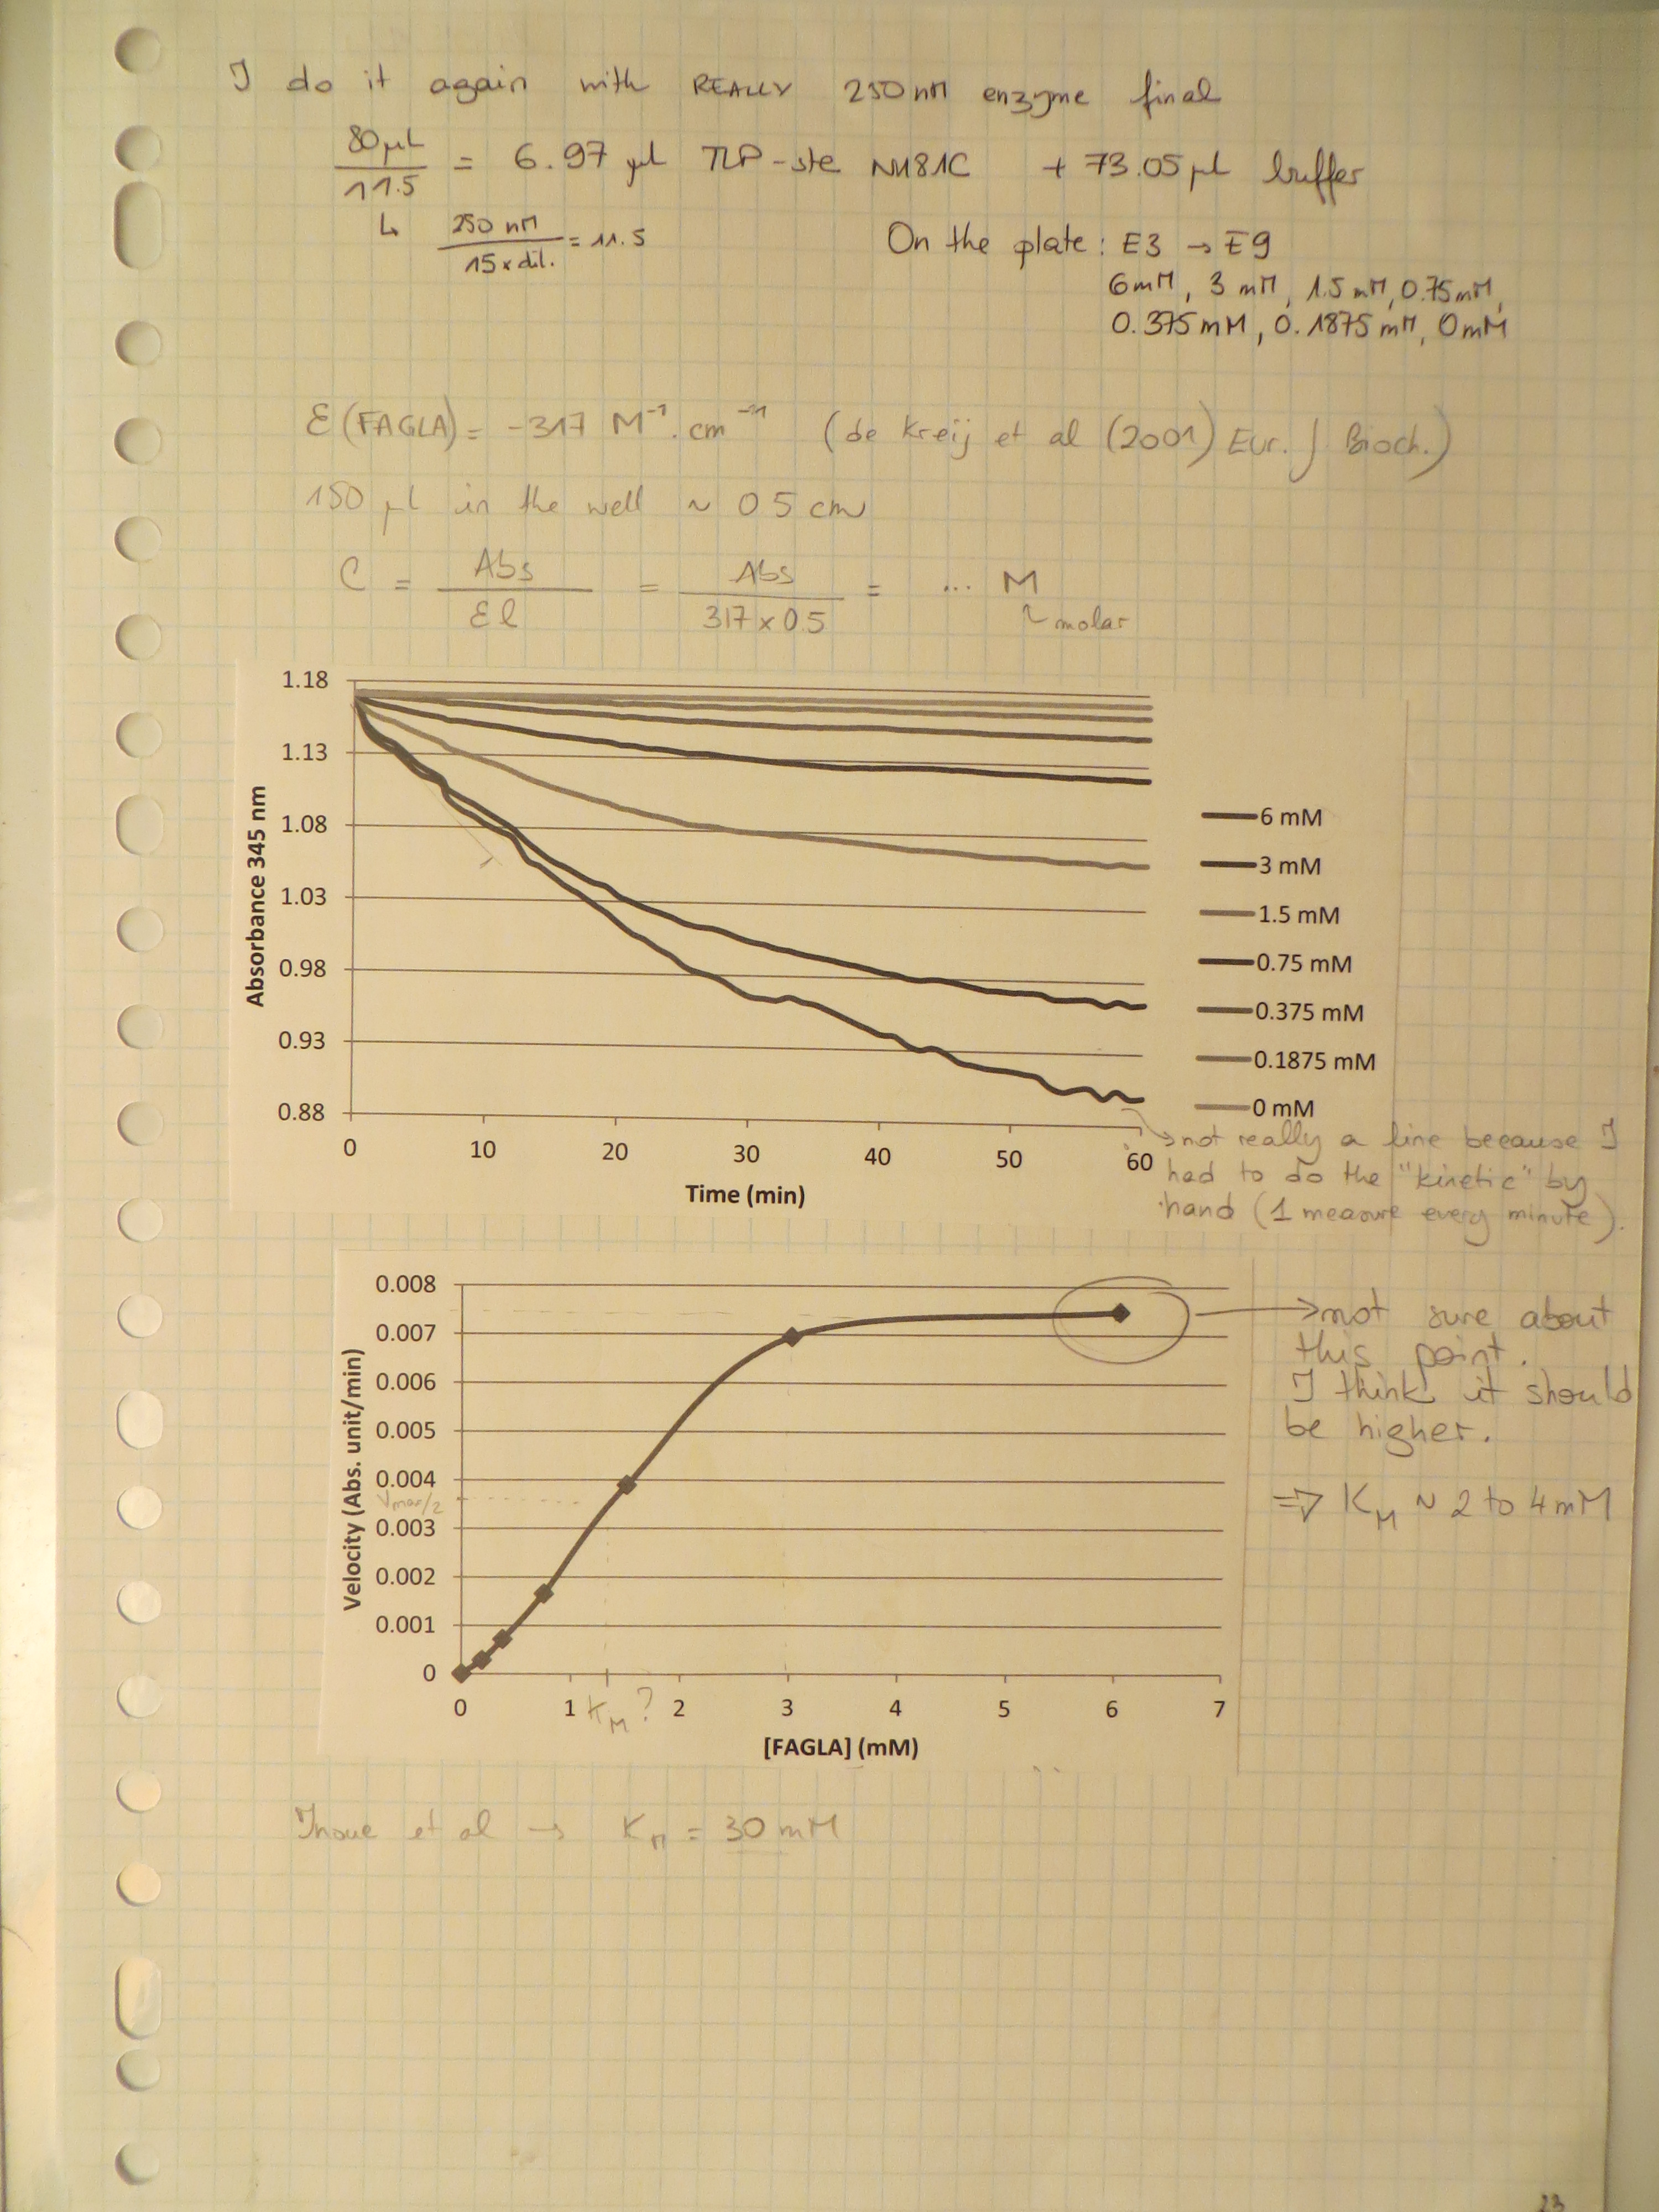 I do it again with REALLY 250 nM enzyme final
80 µL / 11.5 = 6.97 µL TLP-ste N181C + 73.05 µL buffer
↳ 250 nM / 15 x dil. = 11.5
On the plate : E3 → E9
6mM, 3 mM, 1.5 mM, 0.75mM,
0.375mM, 0.1875 mM, 0mM
ε(FAGLA) = -317 M⁻¹.cm⁻¹ (de Kreij et al (2001) Eur. J Bioch.)
150 µL in the well ~ 0.5 cm
C = Abs / εl = Abs / 317 x 0.5 = ... M
molar
1.18
1.13
1.08
1.03
0.98
0.93
0.88
Absorbance 345 nm
0 10 20 30 40 50 60
Time (min)
6 mM
3 mM
1.5 mM
0.75 mM
0.375 mM
0.1875 mM
0 mM
→ not really a line because I
had to do the "kinetic" by
hand (1 measure every minute).
0.008
0.007
0.006
0.005
0.004
Vmax/2
0.003
0.002
0.001
0
Velocity (Abs. unit/min)
0 1 2 3 4 5 6 7
KM ?
[FAGLA] (mM)
→ not sure about
this point.
I think it should
be higher.
⇒ KM ~ 2 to 4 mM
Inoue et al → KM = 30 mM
23